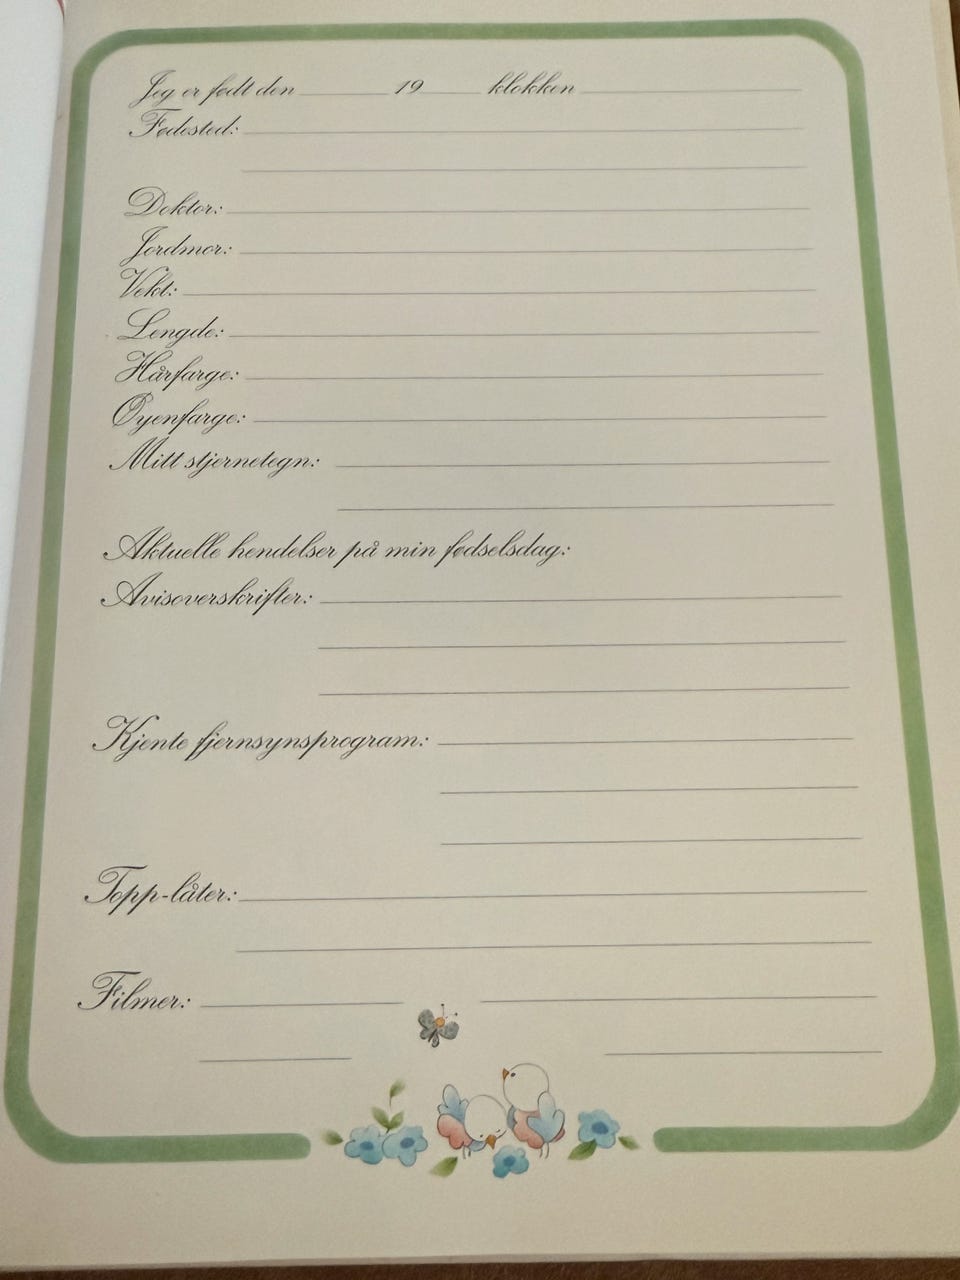 Jeg er født den 19 klokken
Fødested:
Doktor:
Jordmor:
Vekt:
Lengde:
Hårfarge:
Øyenfarge:
Mitt stjernetegn:
Aktuelle hendelser på min fødselsdag:
Avisoverskrifter:
Kjente fjernsynsprogram:
Topp-låter:
Filmer: